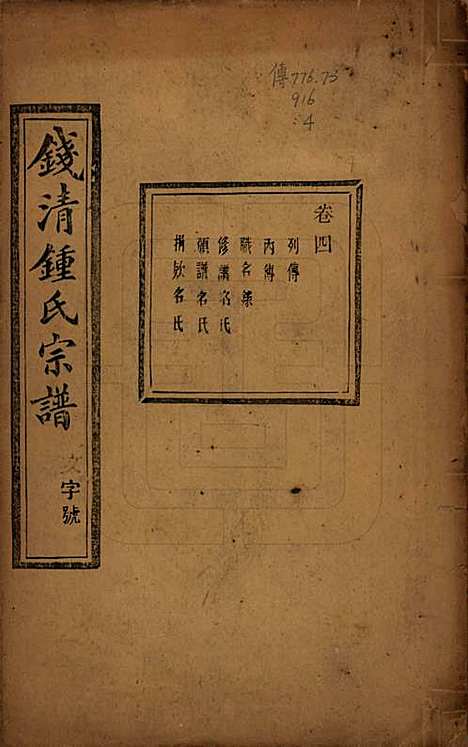 傳776.73
916
:4
卷四
列傳
內傳
職名錄
修譜名氏
領譜名氏
捐欵名氏
錢清鍾氏宗譜
文字號